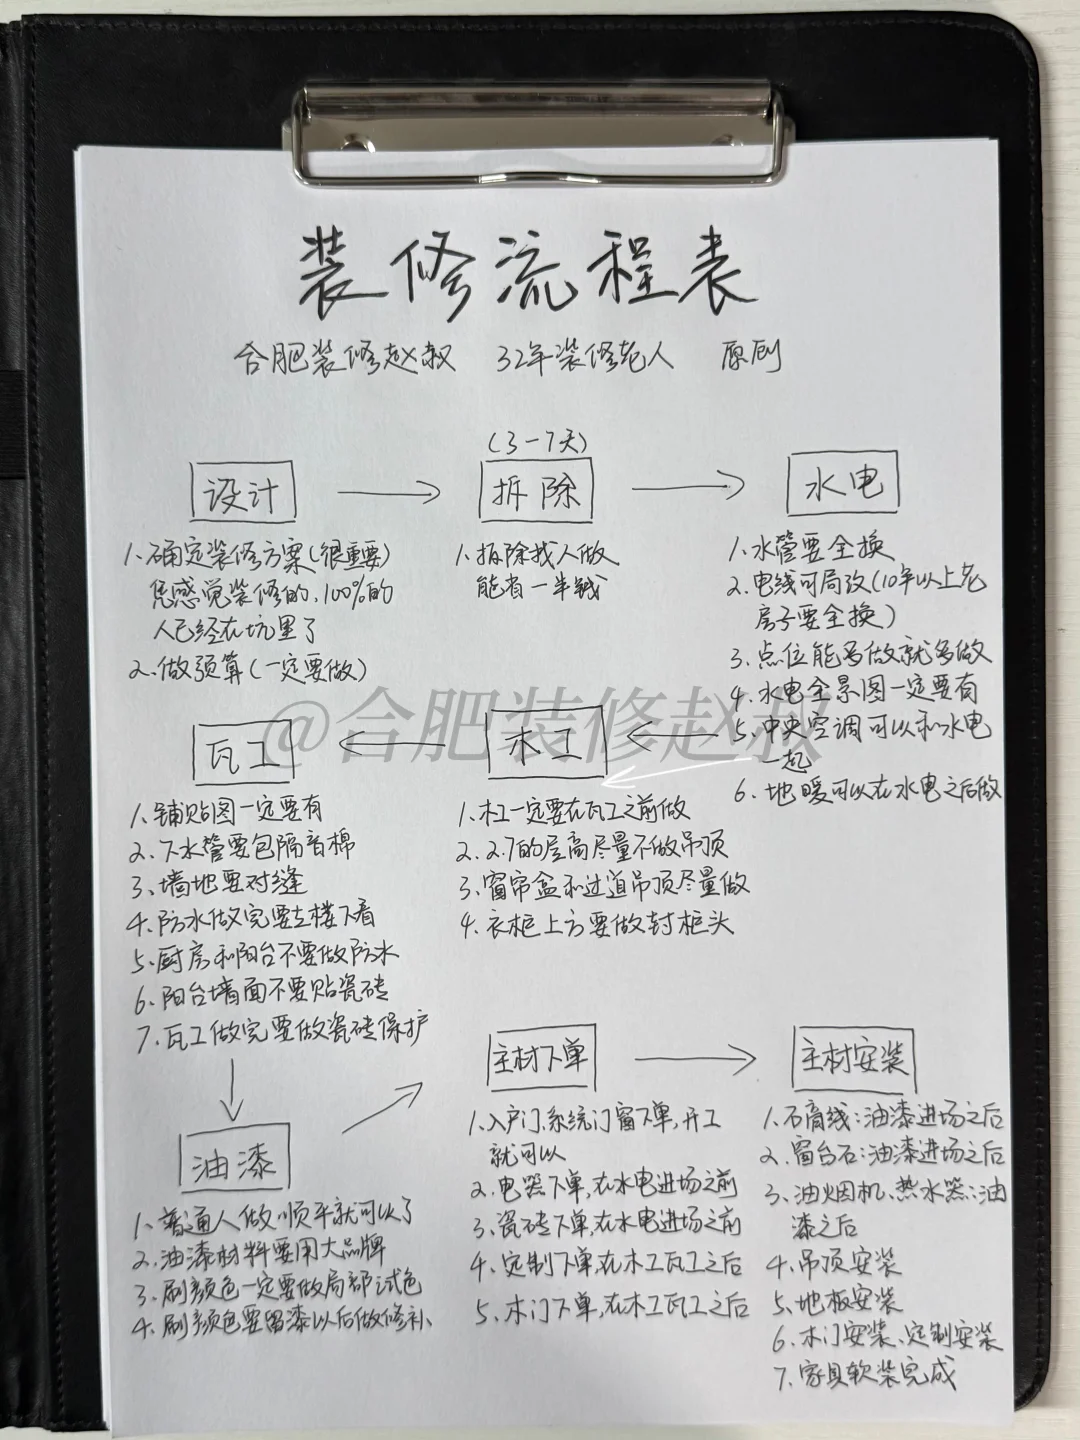 装修流程表
合肥装修赵叔 32年装修老人 原创
(3-7天)
设计
拆除
水电
1.确定装修方案(很重要)
凭感觉装修的,100%的
人已经在坑里了
2.做预算(一定要做)
1.拆除找人做
能省一半钱
1.水管要全换
2.电线可局改(10年以上老
房子要全换)
3.点位能多做就多做
4.水电全景图一定要有
5.中央空调可以和水电
一起
6.地暖可以在水电之后做
@合肥装修赵叔
瓦工
木工
1.铺贴图一定要有
2.下水管要包隔音棉
3.墙地要对缝
4.防水做完要去楼下看
5.厨房和阳台不要做防水
6.阳台墙面不要贴瓷砖
7.瓦工做完要做瓷砖保护
1.木工一定要在瓦工之前做
2.2.7的层高尽量不做吊顶
3.窗帘盒和过道吊顶尽量做
4.衣柜上方要做封柜头
油漆
1.普通人做顺平就可以了
2.油漆材料要用大品牌
3.刷颜色一定要做局部试色
4.刷颜色要留漆以后做修补
主材下单
1.入户门,系统门窗下单,开工
就可以
2.电器下单,在水电进场之前
3.瓷砖下单,在水电进场之前
4.定制下单,在木工瓦工之后
5.木门下单,在木工瓦工之后
主材安装
1.石膏线:油漆进场之后
2.窗台石:油漆进场之后
3.油烟机、热水器:油
漆之后
4.吊顶安装
5.地板安装
6.木门安装、定制安装
7.家具软装完成